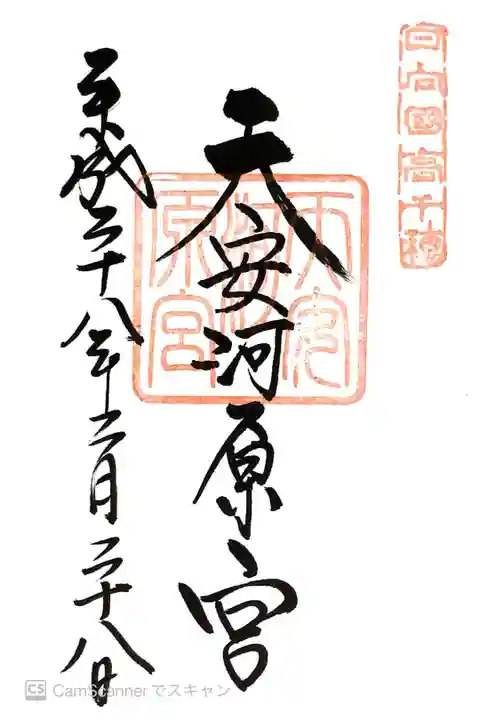 日向國高千穂
天安河原宮
天安河原宮
平成二十八年二月二十八日
CS CamScanner でスキャン